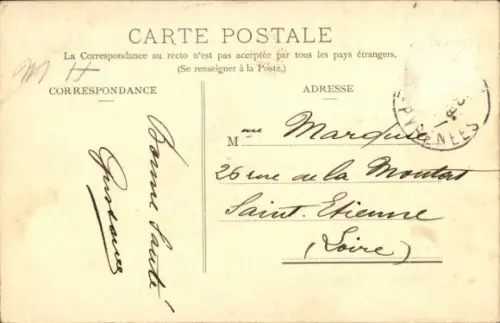 CARTE POSTALE
La Correspondance au recto n'est pas acceptée par tous les pays étrangers.
(Se renseigner à la Poste.)
CORRESPONDANCE
ADRESSE
Bonne Santé
Mme Marquise
26 rue de la Montat
Saint-Etienne
(Loire)
PYRENEES